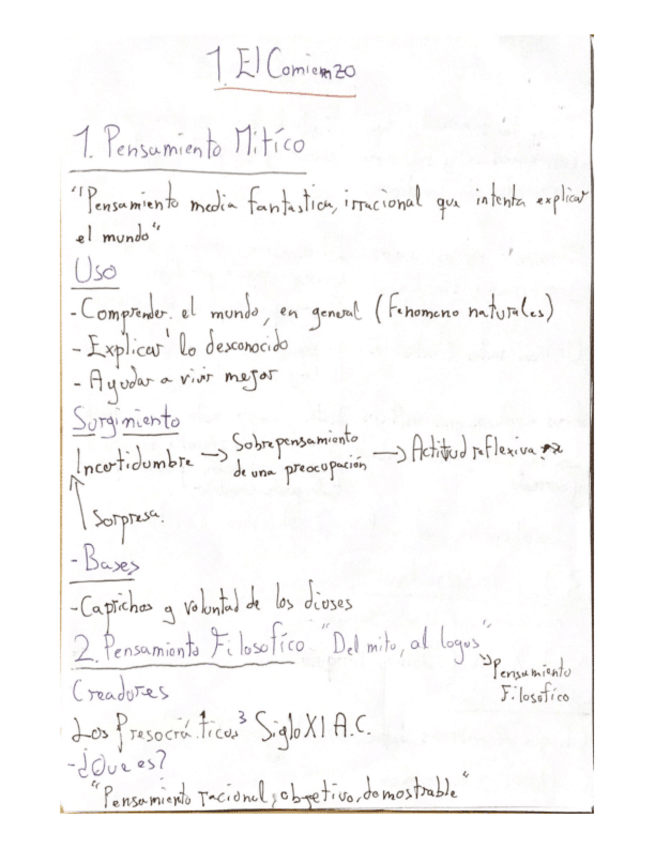 1. El Comienzo
1. Pensamiento Mitíco
"Pensamiento media fantastica, irracional que intenta explicar
el mundo"
Uso
- Comprender el mundo, en general (Fenomeno naturales)
- Explicar lo desconocido
- Ayudar a vivir mejor
Surgimiento
Incertidumbre → Sobrepensamiento de una preocupación → Actitud reflexiva
Sorpresa.
- Bases
- Caprichos y voluntad de los dioses
2. Pensamiento Filosofíco "Del mito, al logos"
Pensamiento
Filosofíco
Creadores
Los Presocráticos Siglo XI A.C.
- ¿Que es?
"Pensamiento racional, objetivo, demostrable"